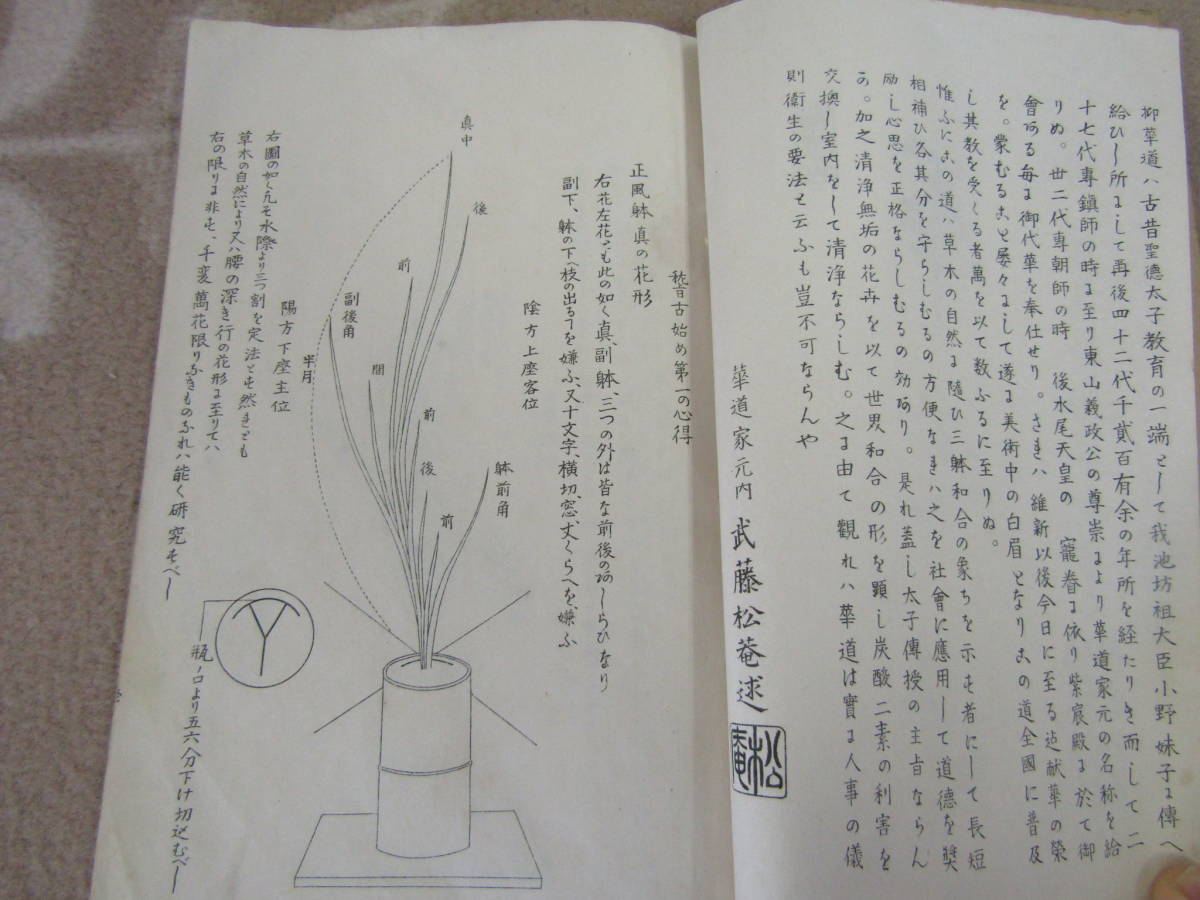 抑華道ハ古昔聖德太子教育の一端として我池坊祖大臣小野妹子ニ傳へ
給ひし所にして再後四十二代千貳百有余の年所を経たりき而して二
十七代專鎮師の時に至り東山義政公の尊崇により華道家元の名称を給
りぬ。丗二代專朝師の時 後水尾天皇の 寵眷に依り紫宸殿に於て御
會ある毎に御代華を奉仕せり。さきハ 維新以後今日に至る迠献華の榮
を。蒙むること屡々にして遂に美術中の白眉となりこの道全國に普及
し其教を受くる者萬を以て数ふるに至りぬ。
惟ふにこの道ハ草木の自然に隨ひ三躰和合の象ちを示す者にして長短
相補ひ各其分を守らしむるの方便なきハ之を社會に應用して道德を奬
励し心思を正格ならしむるの効あり。是れ蓋し太子傳授の主旨ならん
か。加之清浄無垢の花卉を以て世界和合の形を顕し炭酸二素の利害を
交換し室内をして清浄ならしむ。之に由て觀れハ華道は實に人事の儀
則衛生の要法と云ふも豈不可ならんや
華道家元内 武藤松菴逑
松菴
稽古始め第一の心得
正風躰真の花形
右花左花とも此の如く真、副、躰、三つの外は皆な前後のあしらひなり
副下、躰の下へ枝の出るヿを嫌ふ、又十文字、横切、窓、丈くらへを嫌ふ
陰方上座客位
真中
後
前
副後角
間
前
後
前
躰前角
半月
陽方下座主位
右圖の如く凡そ水際より三つ割を定法とす然きども
草木の自然により又ハ腰の深き行の花形に至りてハ
右の限りに非す、千変萬花限りなきものなれハ能く研究すべし
瓶ノ口より五六分下け切込むべし